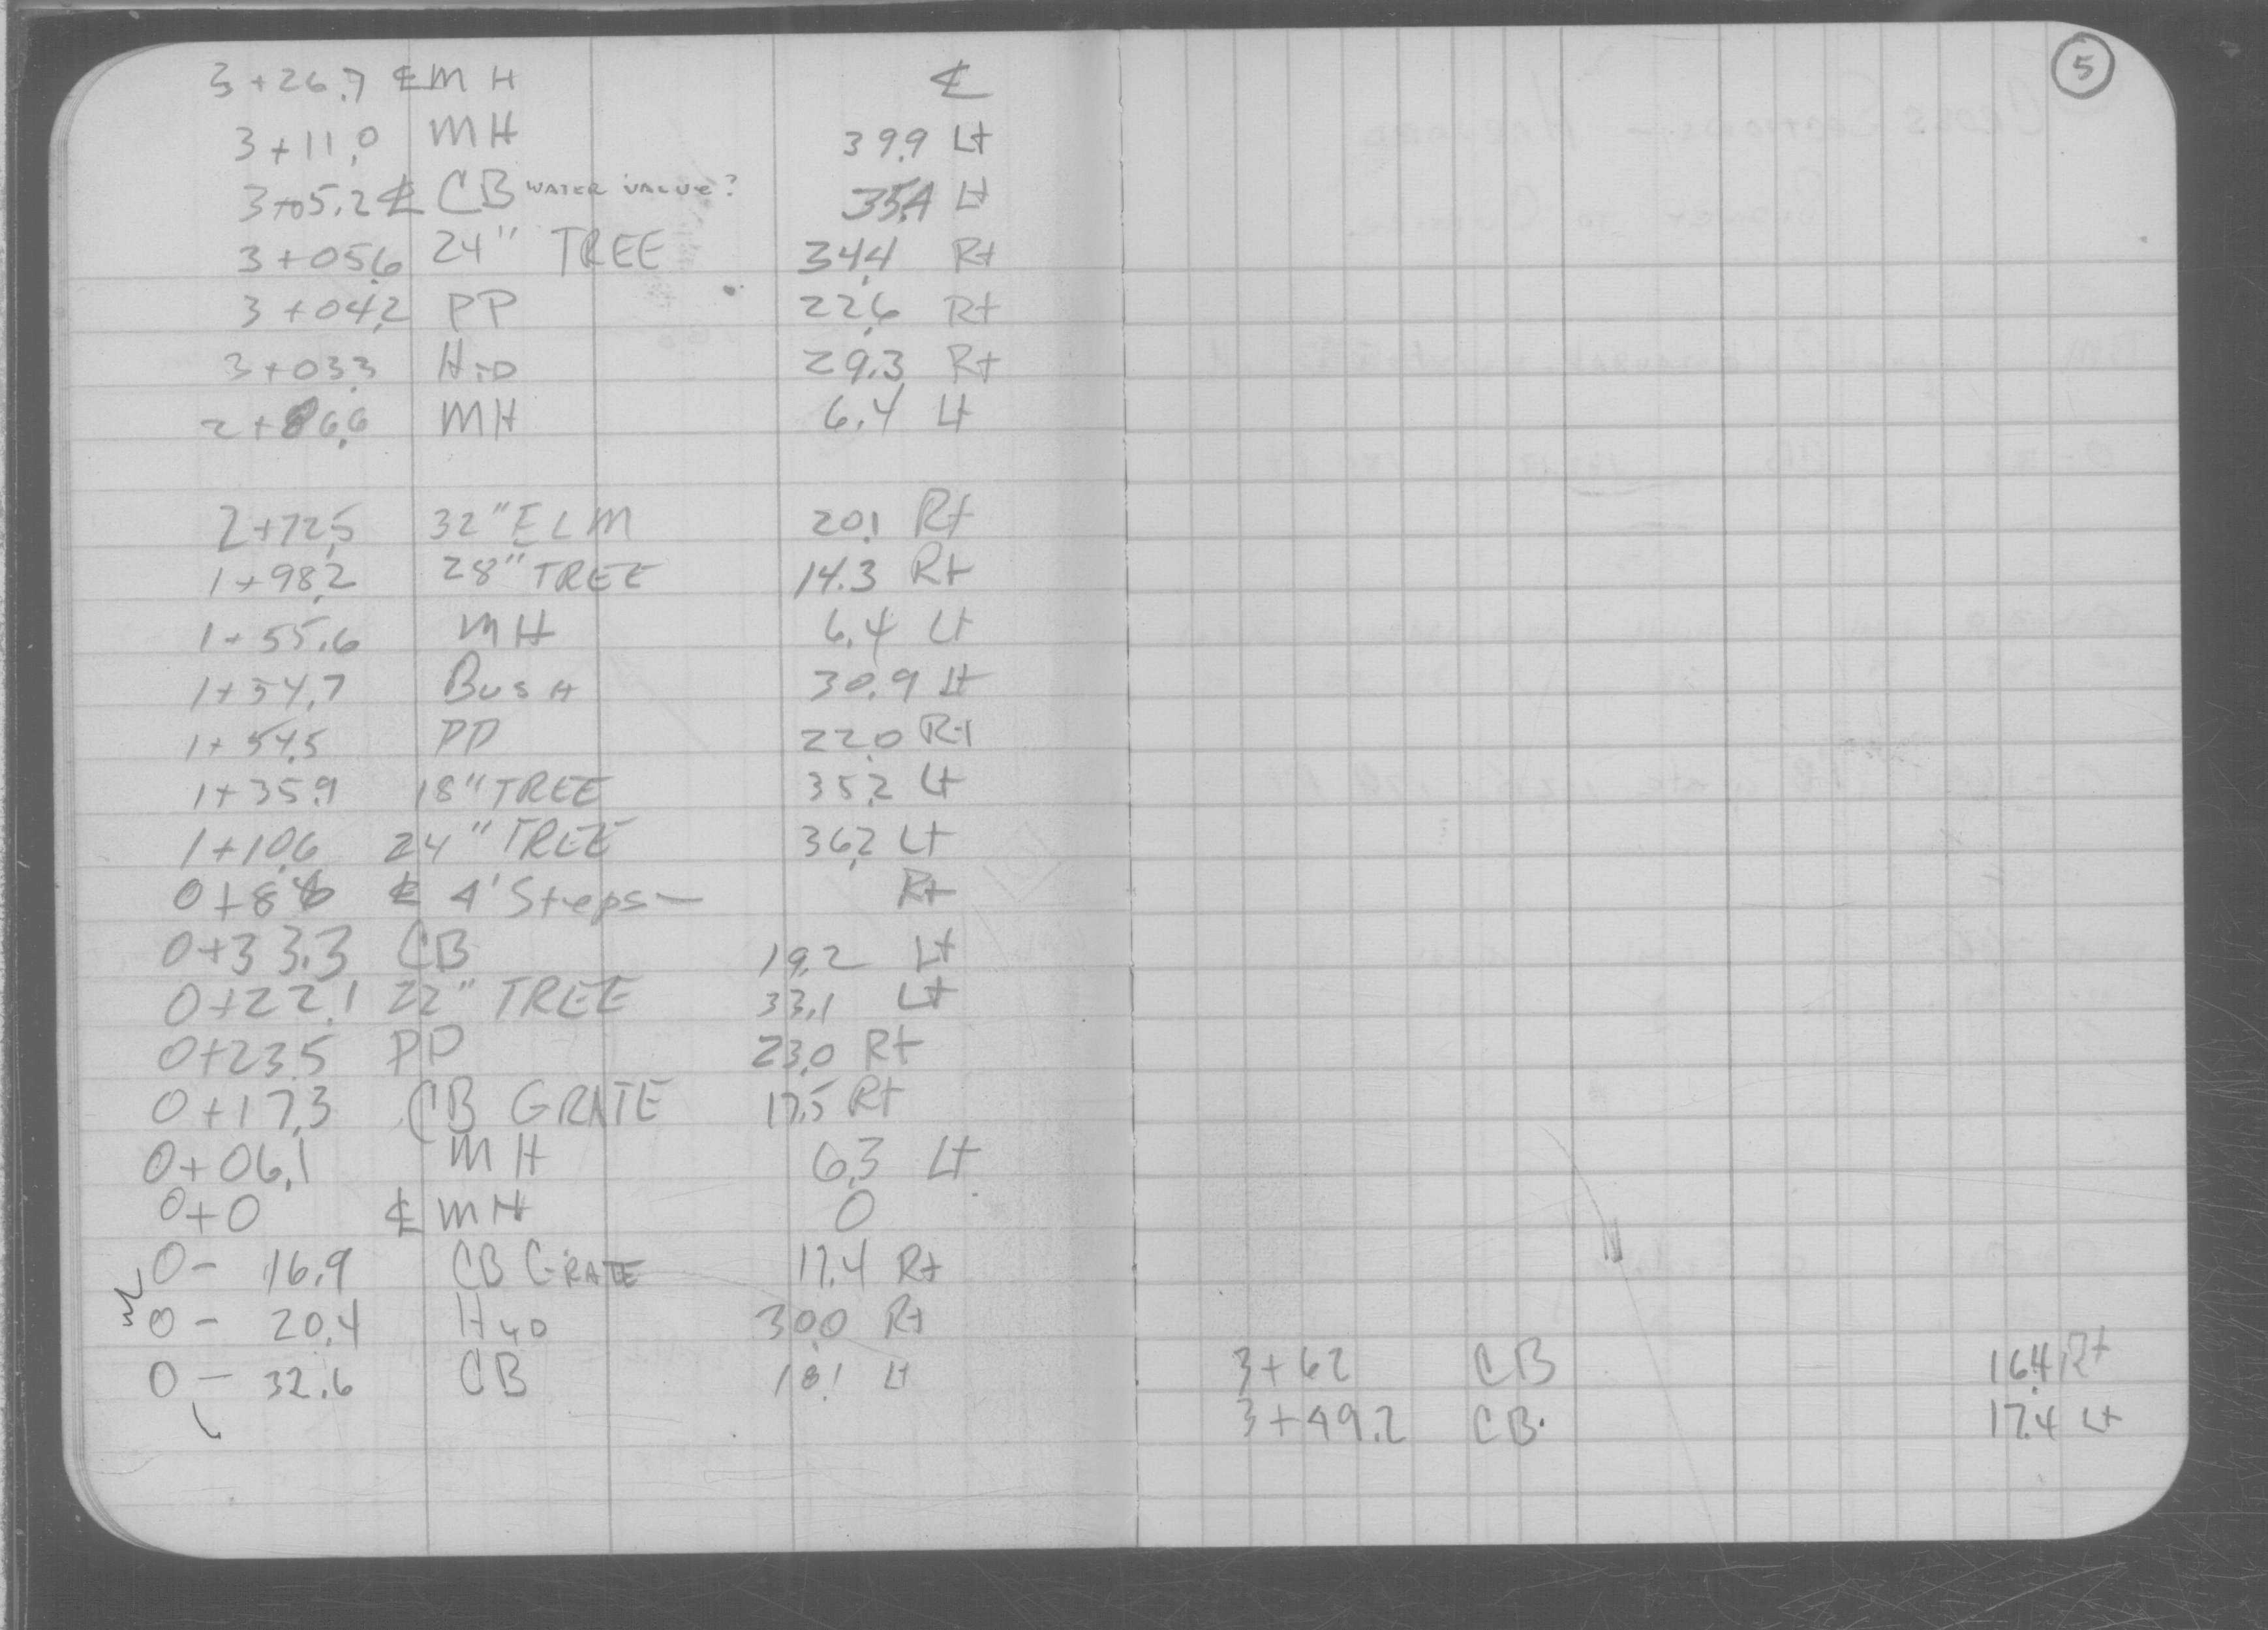 3+26.7 ℄ MH ℄
3+11.0 MH 39.9 Lt
3+05.2 ℄ CB WATER VALUE? 35.4 Lt
3+05.6 24" TREE 34.4 Rt
3+04.2 PP 22.6 Rt
3+03.3 HYD 29.3 Rt
2+86.6 MH 6.4 Lt
2+72.5 32" ELM 20.1 Rt
1+98.2 28" TREE 14.3 Rt
1+55.6 MH 6.4 Lt
1+54.7 BUSH 30.9 Lt
1+54.5 PP 22.0 Rt
1+35.9 18" TREE 35.2 Lt
1+10.6 24" TREE 36.2 Lt
℄ 4' Steps — Rt
0+33.3 CB 19.2 Lt
0+22.1 22" TREE 33.1 Lt
0+23.5 PP 23.0 Rt
0+17.3 CB GRATE 17.5 Rt
0+06.1 MH 6.3 Lt
0+0 ℄ MH 0
0- 16.9 CB GRATE 17.4 Rt
0- 20.4 HYD 30.0 Rt
0- 32.6 CB 18.1 Lt
5
3+62 CB 16.4 Rt
3+49.2 CB. 17.4 Lt